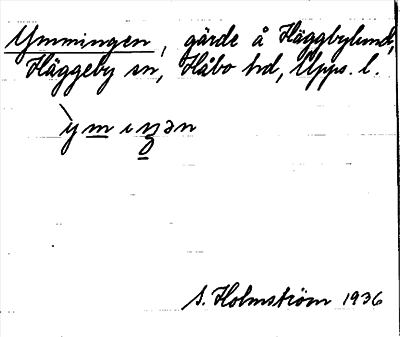 Ymmingen, gärde å Häggbylund,
Häggeby sn, Håbo hd, Upps. l.
`ym̲ıŋ̲ən
S. Holmström 1936